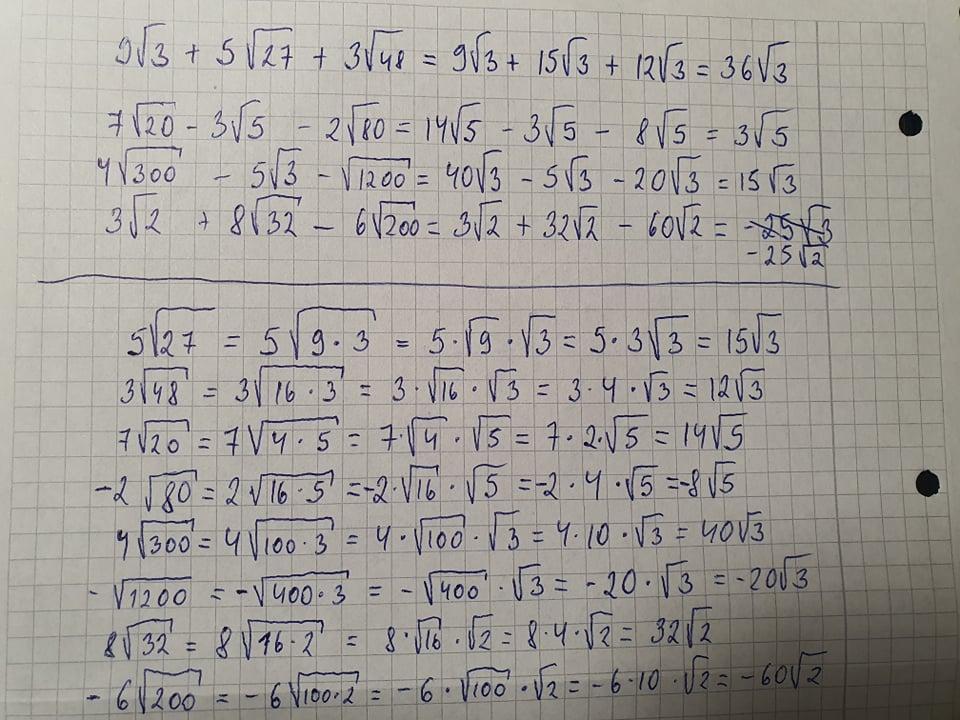 9√3 + 5√27 + 3√48 = 9√3 + 15√3 + 12√3 = 36√3
7√20 - 3√5 - 2√80 = 14√5 - 3√5 - 8√5 = 3√5
4√300 - 5√3 - √1200 = 40√3 - 5√3 - 20√3 = 15√3
3√2 + 8√32 - 6√200 = 3√2 + 32√2 - 60√2 = -25√3
-25√2
5√27 = 5√9·3 = 5·√9·√3 = 5·3√3 = 15√3
3√48 = 3√16·3 = 3·√16·√3 = 3·4·√3 = 12√3
7√20 = 7√4·5 = 7·√4·√5 = 7·2·√5 = 14√5
-2√80 = 2√16·5 = -2·√16·√5 = -2·4·√5 = -8√5
4√300 = 4√100·3 = 4·√100·√3 = 4·10·√3 = 40√3
-√1200 = -√400·3 = -√400·√3 = -20·√3 = -20√3
8√32 = 8√16·2 = 8·√16·√2 = 8·4·√2 = 32√2
-6√200 = -6√100·2 = -6·√100·√2 = -6·10·√2 = -60√2